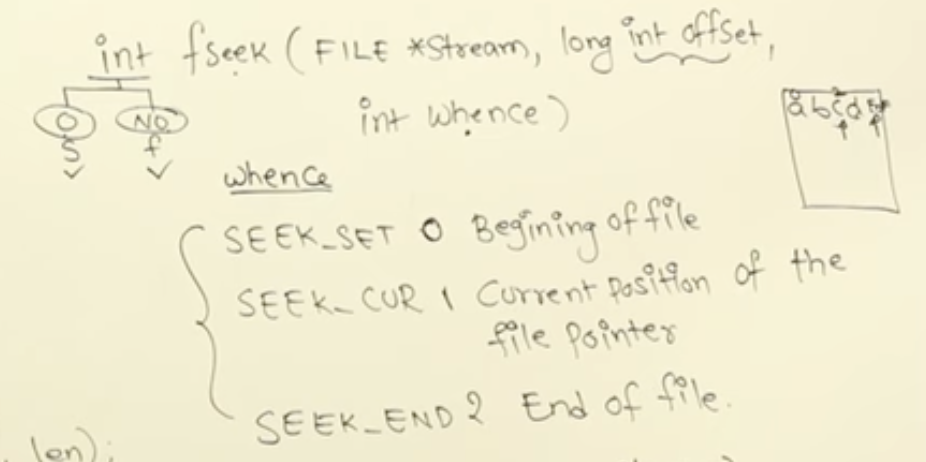 int fseek ( FILE *Stream, long int offset,
int whence )
0 NO
S f
a b c d
whence
SEEK_SET 0 Begining of file
SEEK_CUR 1 Current position of the
file pointer
SEEK_END 2 End of file.
len);